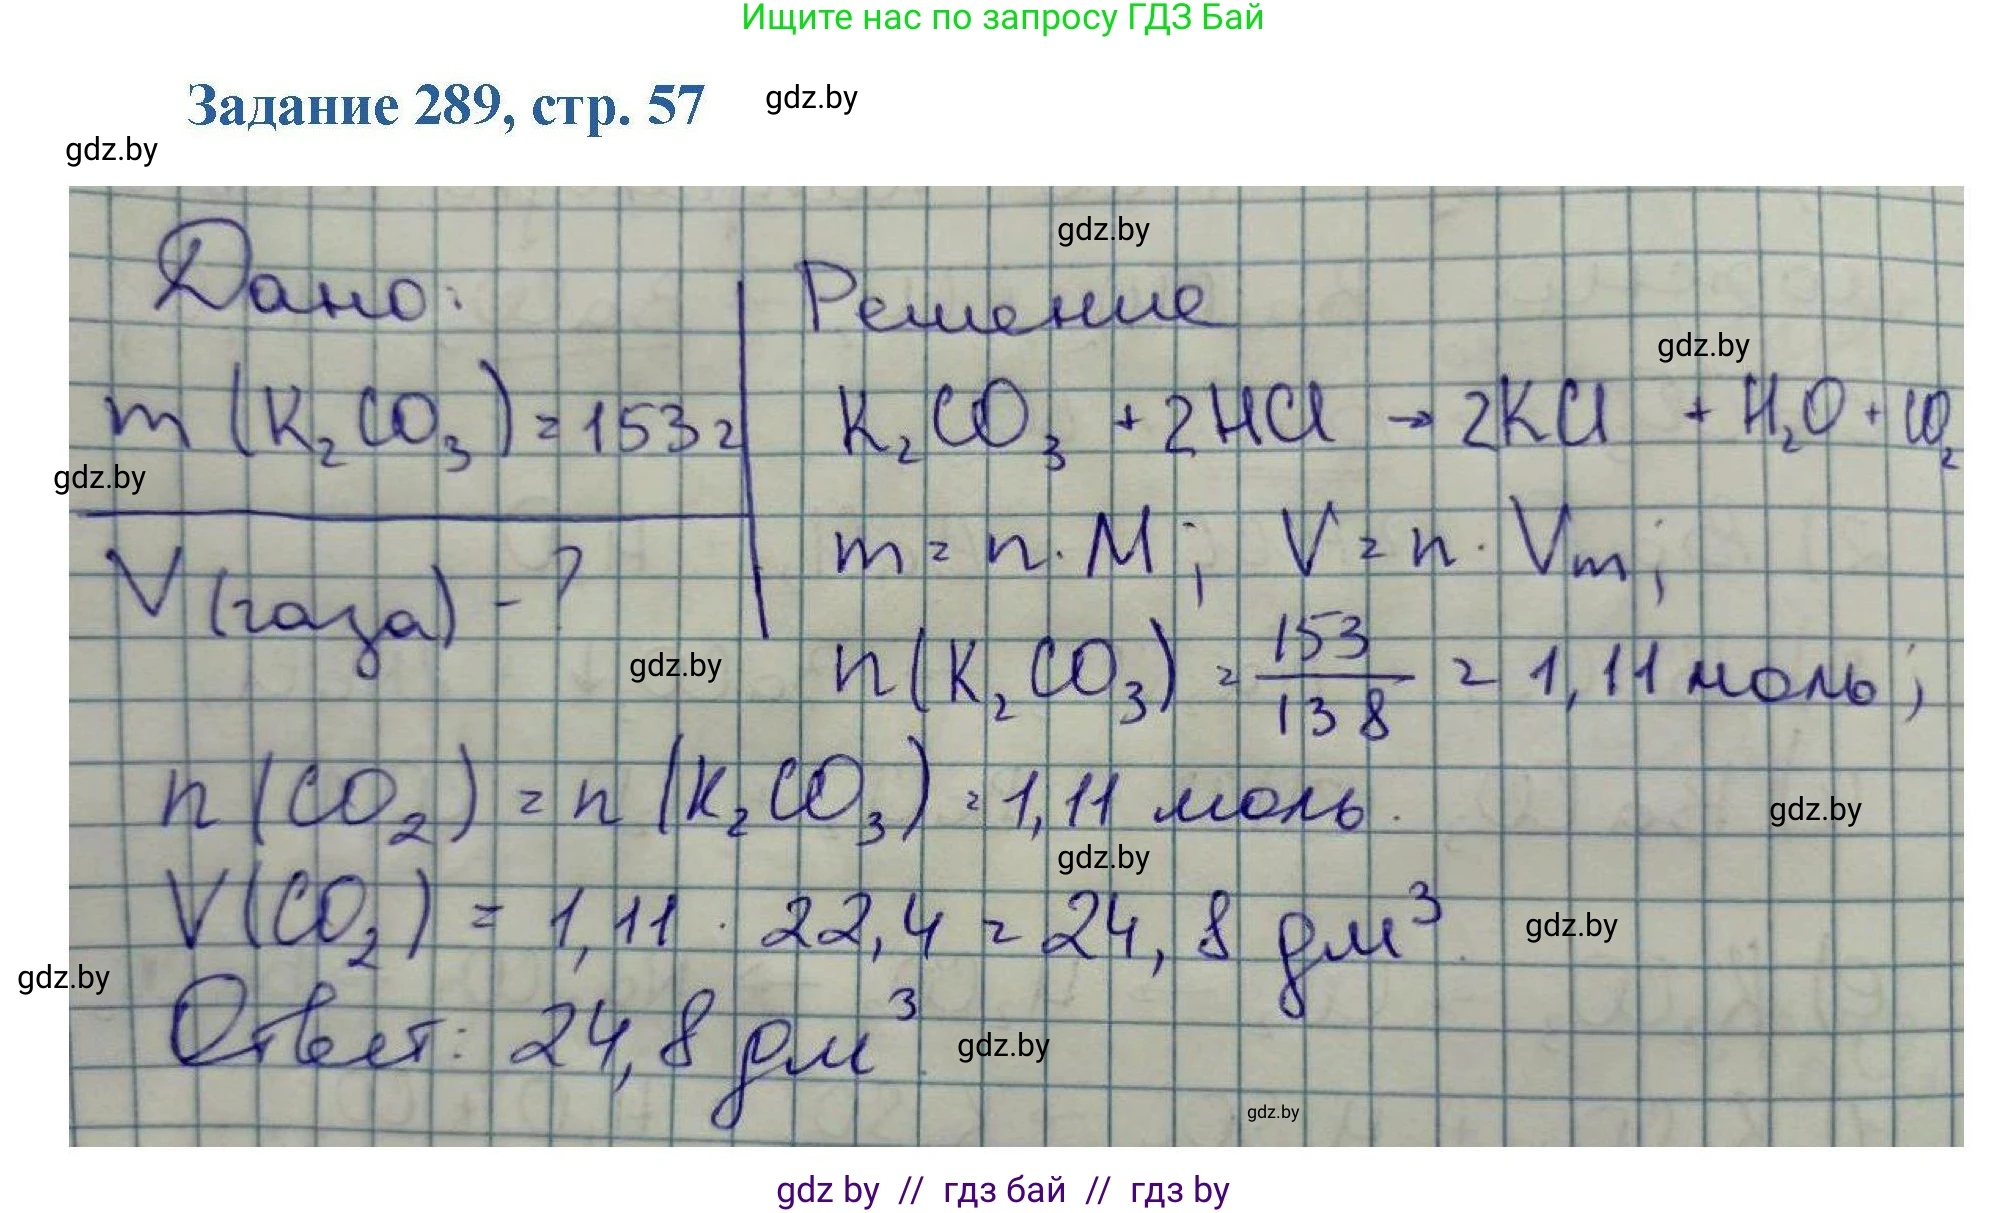 Ищите нас по запросу ГДЗ Бай
Задание 289, стр. 57
gdz.by
gdz.by
gdz.by
Дано:
Решение
gdz.by
m (K₂CO₃) = 153 г
K₂CO₃ + 2HCl → 2KCl + H₂O + CO₂
gdz.by
m = n · M; V = n · Vm;
V (газа) - ?
n (K₂CO₃) = 153/138 = 1,11 моль;
gdz.by
n (CO₂) = n (K₂CO₃) = 1,11 моль.
gdz.by
gdz.by
V (CO₂) = 1,11 · 22,4 = 24,8 дм³.
gdz.by
gdz.by
Ответ: 24,8 дм³.
gdz.by
gdz.by
gdz by // гдз бай // гдз by